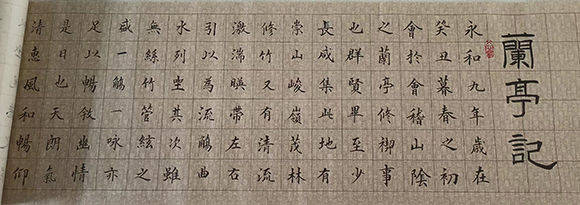 蘭亭記
永和九年歲在
癸丑暮春之初
會於會稽山陰
之蘭亭修禊事
也群賢畢至少
長咸集此地有
崇山峻嶺茂林
修竹又有清流
激湍暎帶左右
引以為流觴曲
水列坐其次雖
無絲竹管絃之
盛一觴一詠亦
足以暢敘幽情
是日也天朗氣
清惠風和暢仰